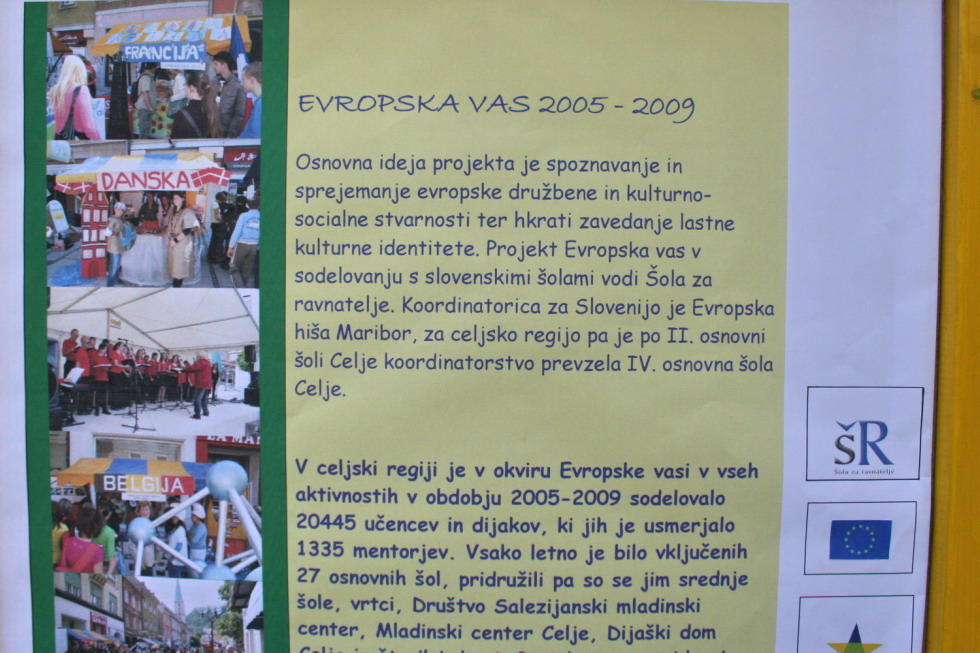 FRANCIJA
DANSKA
BELGIJA
EVROPSKA VAS 2005 - 2009
Osnovna ideja projekta je spoznavanje in
sprejemanje evropske družbene in kulturno-
socialne stvarnosti ter hkrati zavedanje lastne
kulturne identitete. Projekt Evropska vas v
sodelovanju s slovenskimi šolami vodi Šola za
ravnatelje. Koordinatorica za Slovenijo je Evropska
hiša Maribor, za celjsko regijo pa je po II. osnovni
šoli Celje koordinatorstvo prevzela IV. osnovna šola
Celje.
V celjski regiji je v okviru Evropske vasi v vseh
aktivnostih v obdobju 2005-2009 sodelovalo
20445 učencev in dijakov, ki jih je usmerjalo
1335 mentorjev. Vsako letno je bilo vključenih
27 osnovnih šol, pridružili pa so se jim srednje
šole, vrtci, Društvo Salezijanski mladinski
center, Mladinski center Celje, Dijaški dom
šR
Šola za ravnatelje